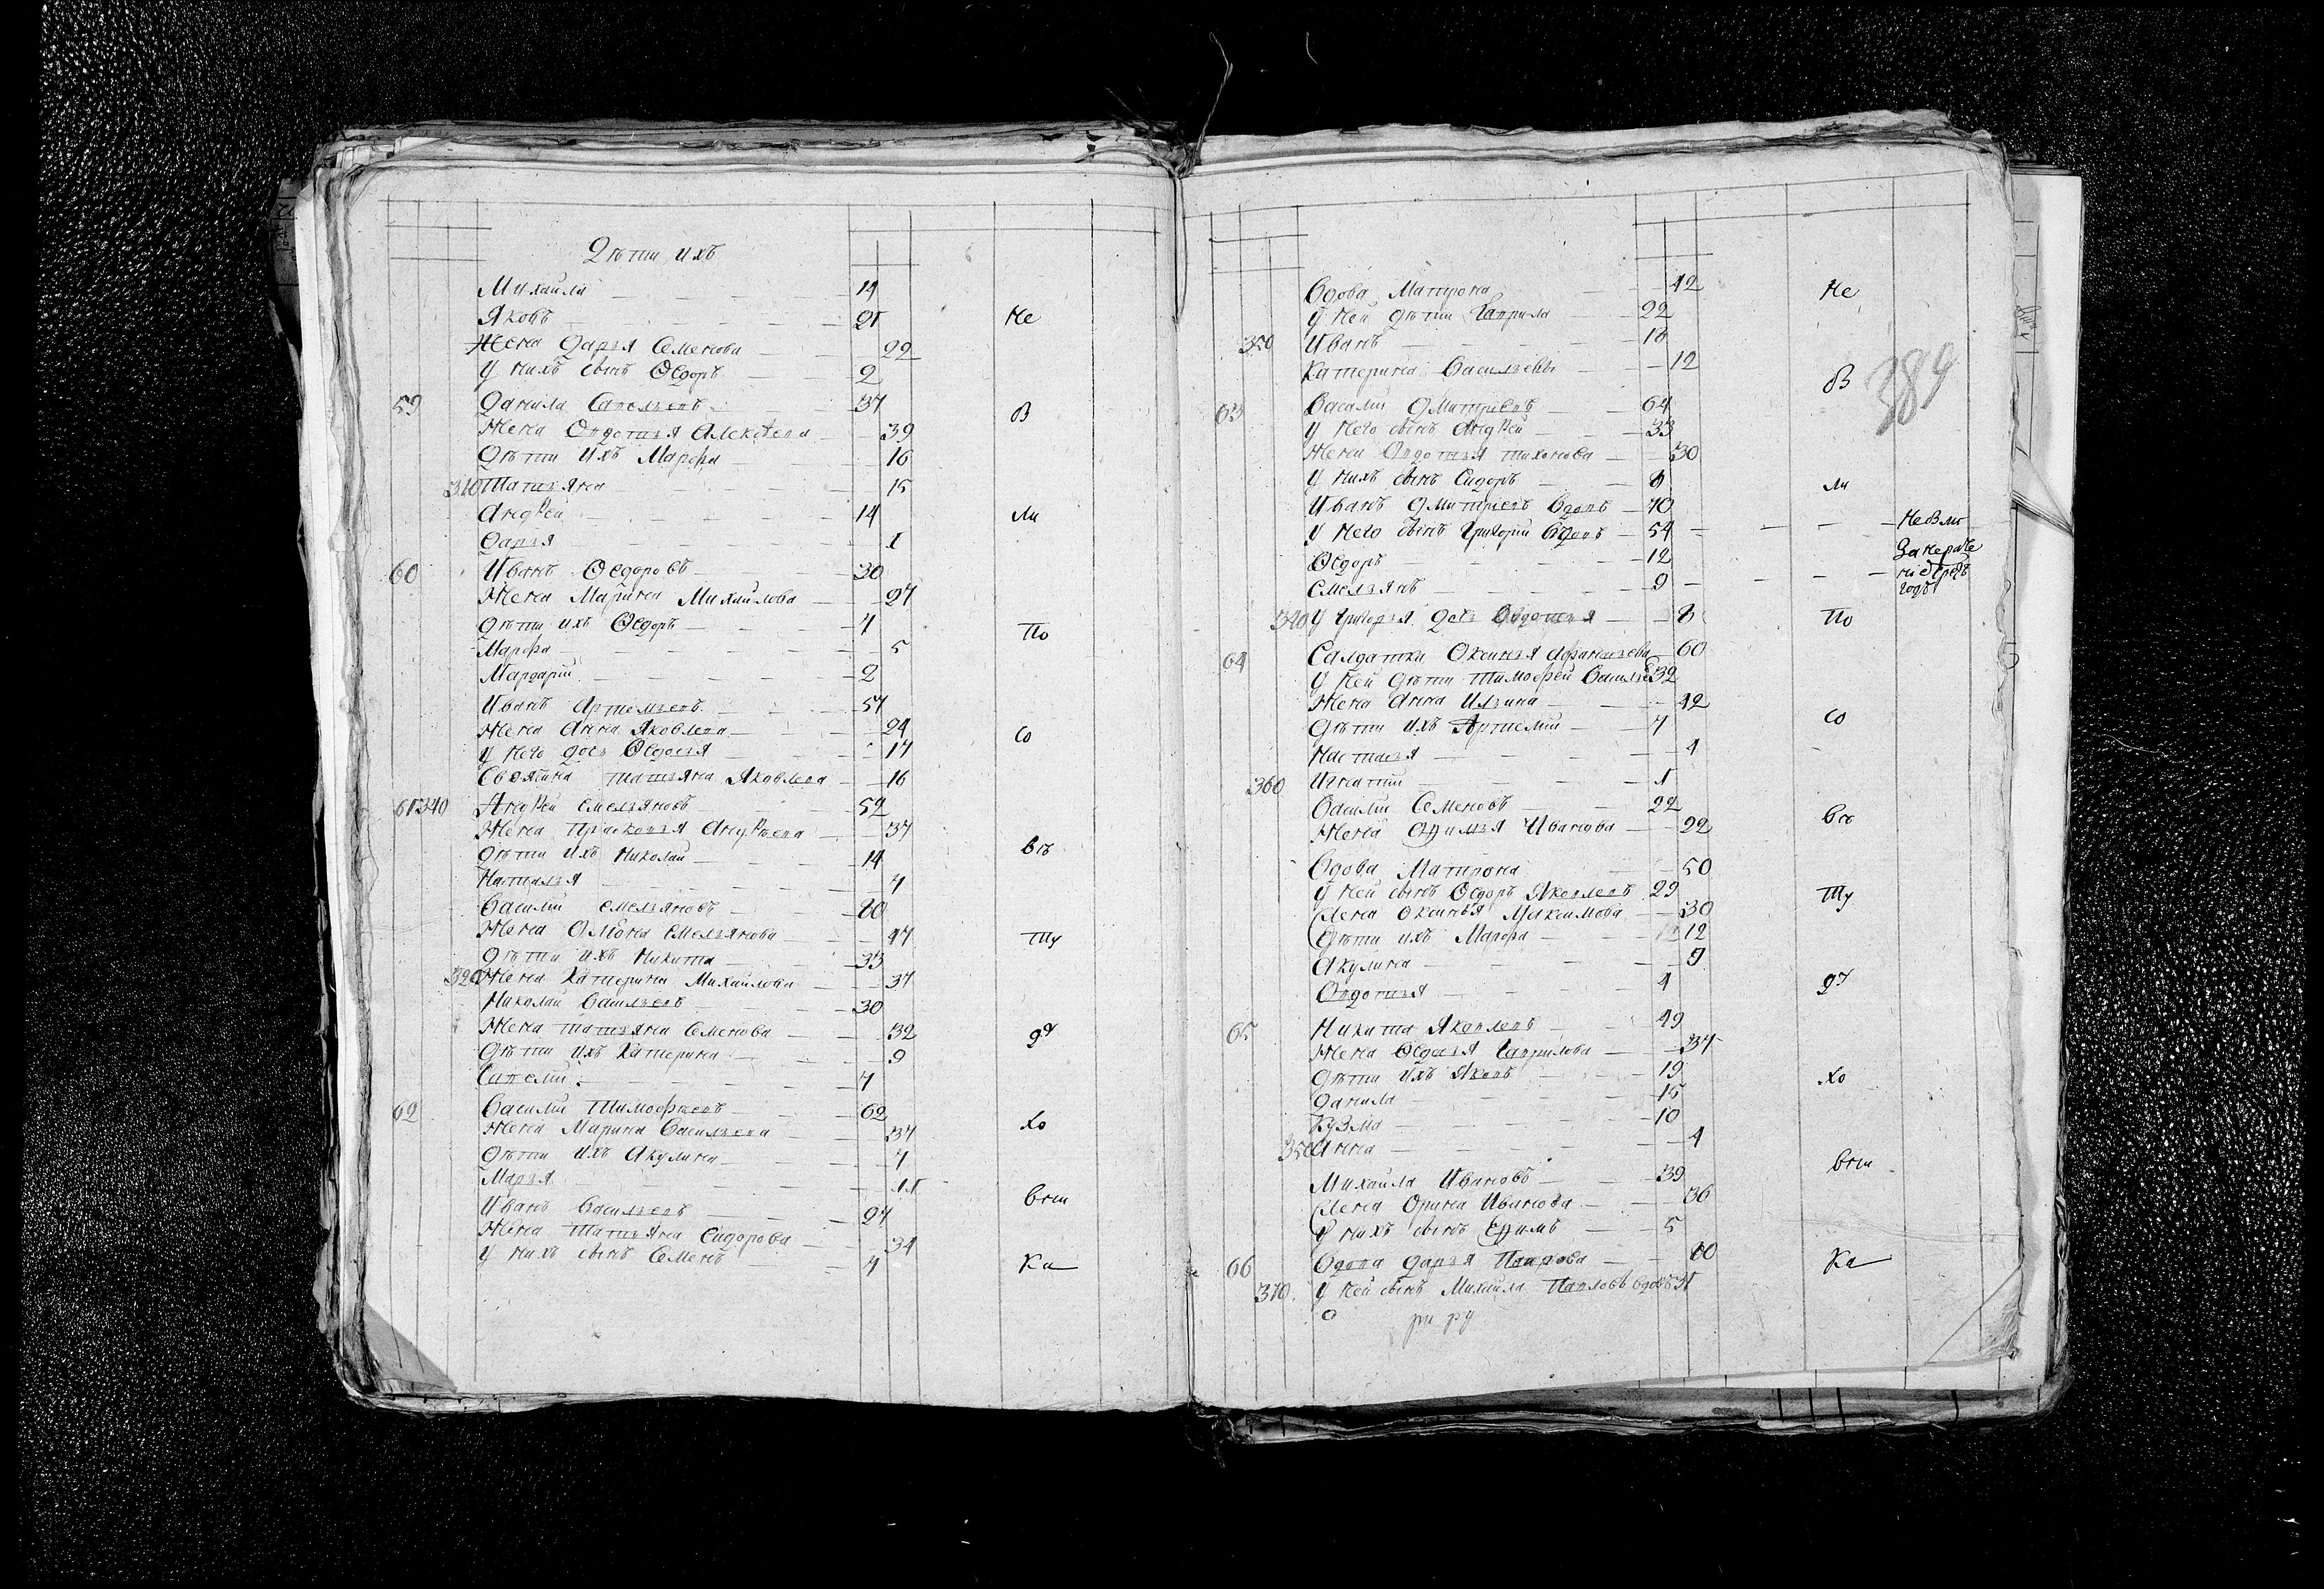 Дѣти ихъ
Михайла 14
Яковъ 21 Не
Жена Дарья Семенова 22
У нихъ сынъ Ѳедоръ 2
59 Данила Савельевъ 37 В
Жена Овдотья Алексѣева 39
Дѣти ихъ Марѳа 16
Татьяна 15
Андрей 14 ли
Дарья 1
60 Иванъ Ѳедоровъ 30
Жена Марина Михайлова 27
Дѣти ихъ Ѳедоръ 7 По
Марѳа 5
Мардарий 2
Иванъ Артемьевъ 57
Жена Анна Яковлева 24 Со
У него дочь Ѳедосья 17
Татьяна Яковлева 16
61 Андрей Емельяновъ 52
Жена Прасковья Андрѣева 37
Дѣти ихъ Николай 14 вѣ
Наталья 7
Василий Емельяновъ 60
Жена Алiона Емельянова 47 ту
Дѣти ихъ Никита 33
Жена Катерина Михайлова 37
Николай Васильевъ 30
Жена Татьяна Семенова 32 ду
Дѣти ихъ Катерина 9
Савелий 7
62 Василий Тимоѳеевъ 62 хо
Жена Марина Васильева 37
Дѣти ихъ Акулина 7
Марья 11
Иванъ Васильевъ 27 вны
Жена Татьяна Сидорова 34
У нихъ сынъ Семенъ 7 Ка
Вдова Матрона 42 Не
У ней дѣти Гаврила 22
350 Иванъ 18
Катерина Васильевы 12 В
389
63 Василий Дмитриевъ 64
У него сынъ Андрей 33
Жена Овдотья Тихонова 30
У нихъ сынъ Сидоръ ли
Иванъ Дмитриевъ вдовъ 70
У него сынъ Григорий вдовъ 54
Ѳедоръ 12
Емельянъ 9
годъ
У Григорья дочь Овдотья 8 По
64 Салдатка Оксинья Афанасьева 60
У ней дѣти Тимоѳей Васильев 32
Жена Анна Ильина 42
Дѣти ихъ Артемий 7 со
Настасья 4
360 Игнатий 1
Василий Семеновъ 22
Жена Офимья Иванова 22 вѣ
Вдова Матрона 50
У ней сынъ Ѳедоръ Яковлевъ 29 ту
Жена Оксинья Максимова 30
Дѣти ихъ Марѳа 12
Акулина 9
Овдотья 4 ду
65 Никита Яковлевъ 49
Жена Ѳедосья Гаврилова 37
Дѣти ихъ Яковъ 19 хо
Данила 15
Кузма 10
Анна 4
Михайла Ивановъ 39 вны
Жена Орина Иванова 36
У нихъ сынъ Ефимъ 5
66 Вдова Дарья Петрова 60 Ка
370 У ней сынъ Михайла Павловъ вдовъ 31